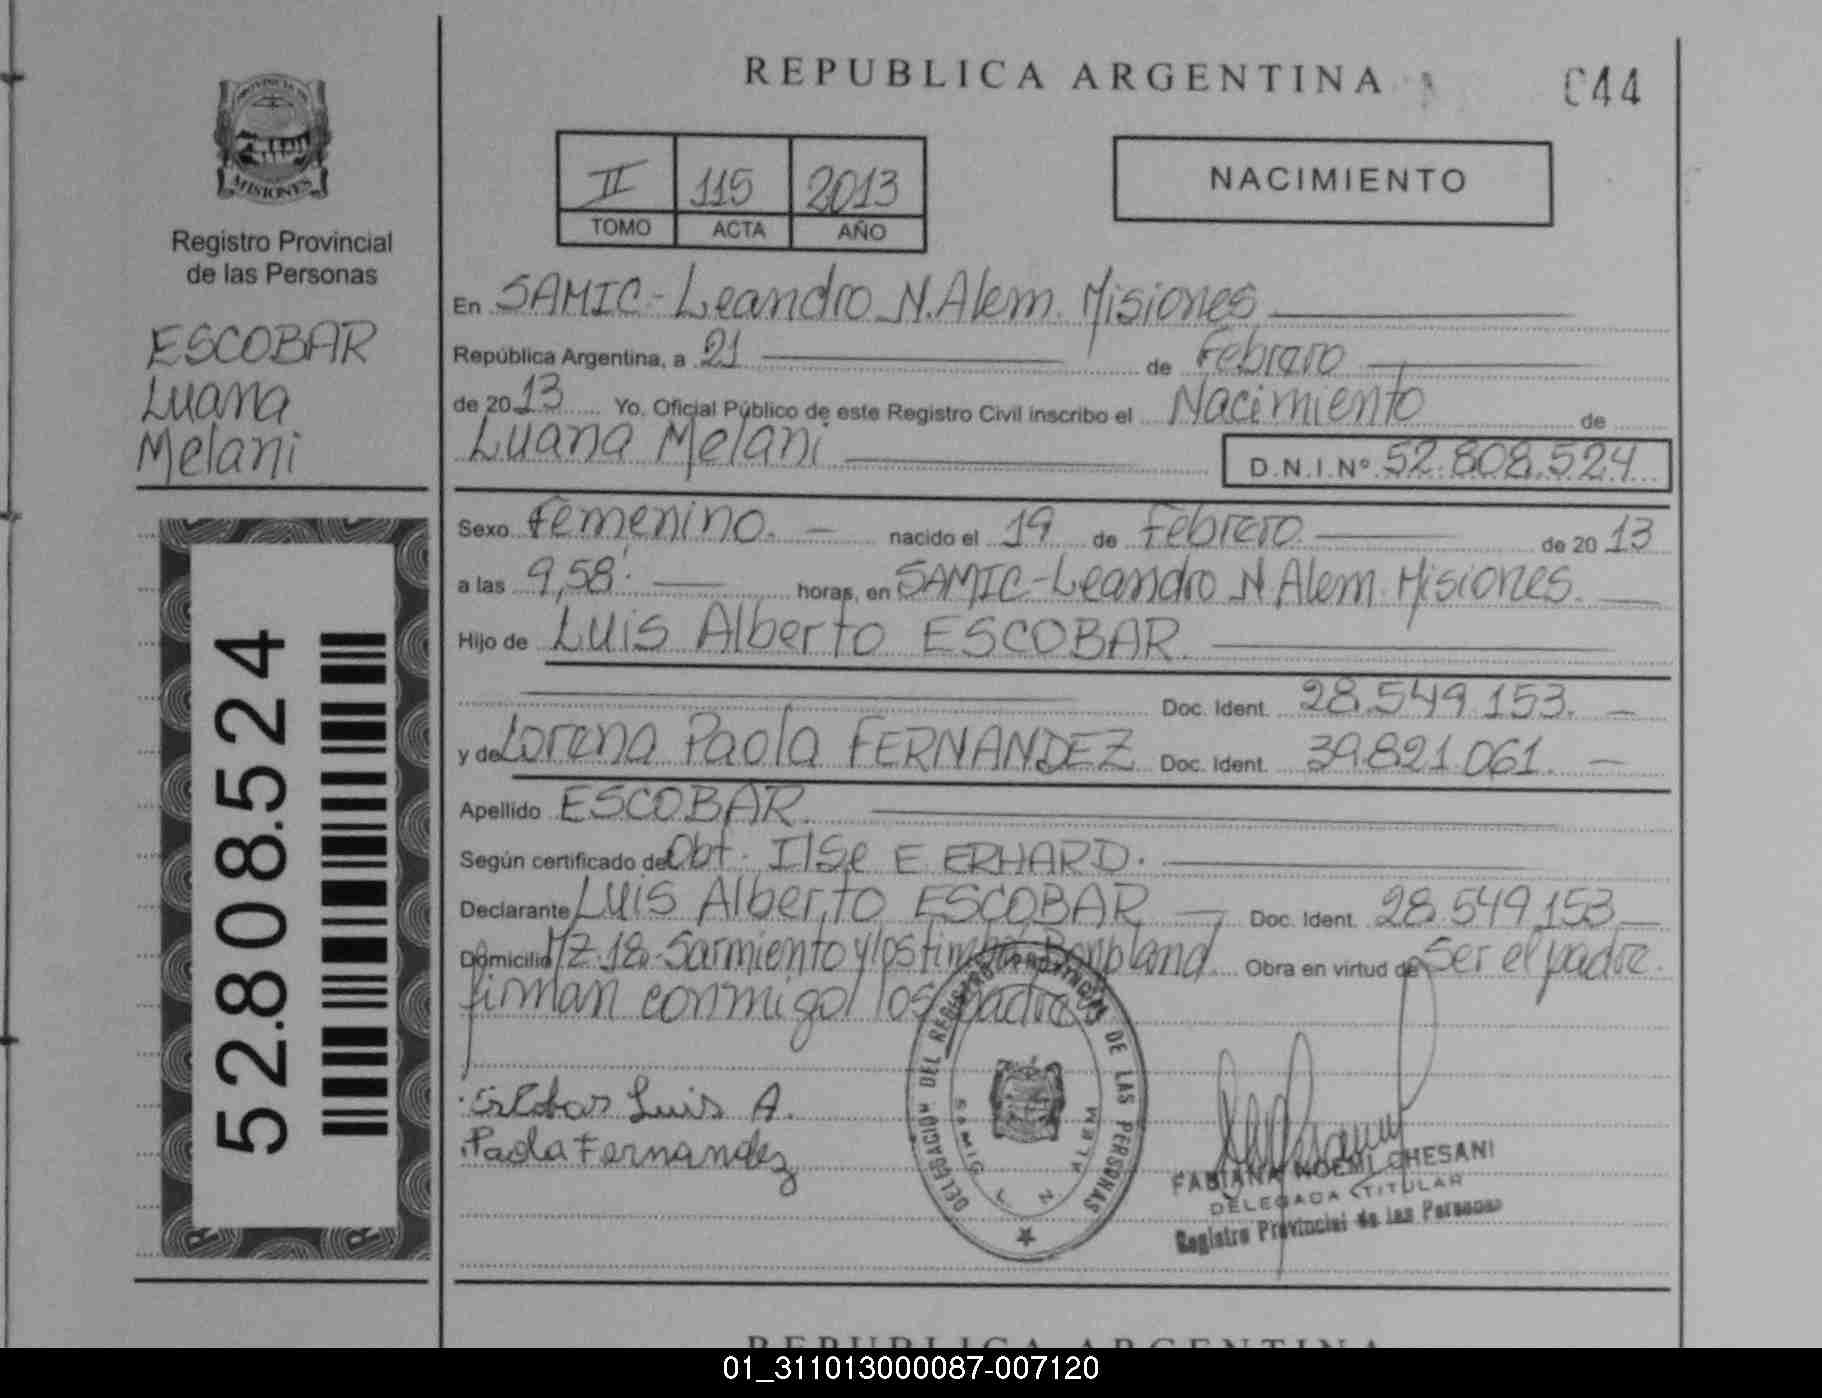 REPUBLICA ARGENTINA
044
PROVINCIA DE
MISIONES
Registro Provincial
de las Personas
ESCOBAR
Luana
Melani
52.808.524
II 115 2013
TOMO ACTA AÑO
NACIMIENTO
En SAMIC-Leandro N. Alem. Misiones
República Argentina, a 21 de Febrero
de 2013 Yo, Oficial Público de este Registro Civil inscribo el Nacimiento de
Luana Melani D.N.I.Nº 52.808.524
Sexo Femenino. nacido el 19 de Febrero de 2013
a las 9,58' horas, en SAMIC-Leandro N. Alem. Misiones.
Hijo de Luis Alberto ESCOBAR.
Doc. Ident. 28.549.153.
y de Lorena Paola FERNANDEZ Doc. Ident. 39.821.061.
Apellido ESCOBAR.
Según certificado de Obt. Ilse E. ERHARD.
Declarante Luis Alberto ESCOBAR Doc. Ident. 28.549.153
Domicilio Mz. 18-Sarmiento y los Bonpland. Obra en virtud de Ser el padre.
firman conmigo los padres
DELEGACIÓN DEL REGISTRO PROVINCIAL DE LAS PERSONAS
SAMIC L. N. ALEM
Escobar Luis A.
Paola Fernandez
FABIANA NOEMI CHESANI
DELEGADA TITULAR
Registro Provincial de las Personas
REPUBLICA ARGENTINA
01_311013000087-007120